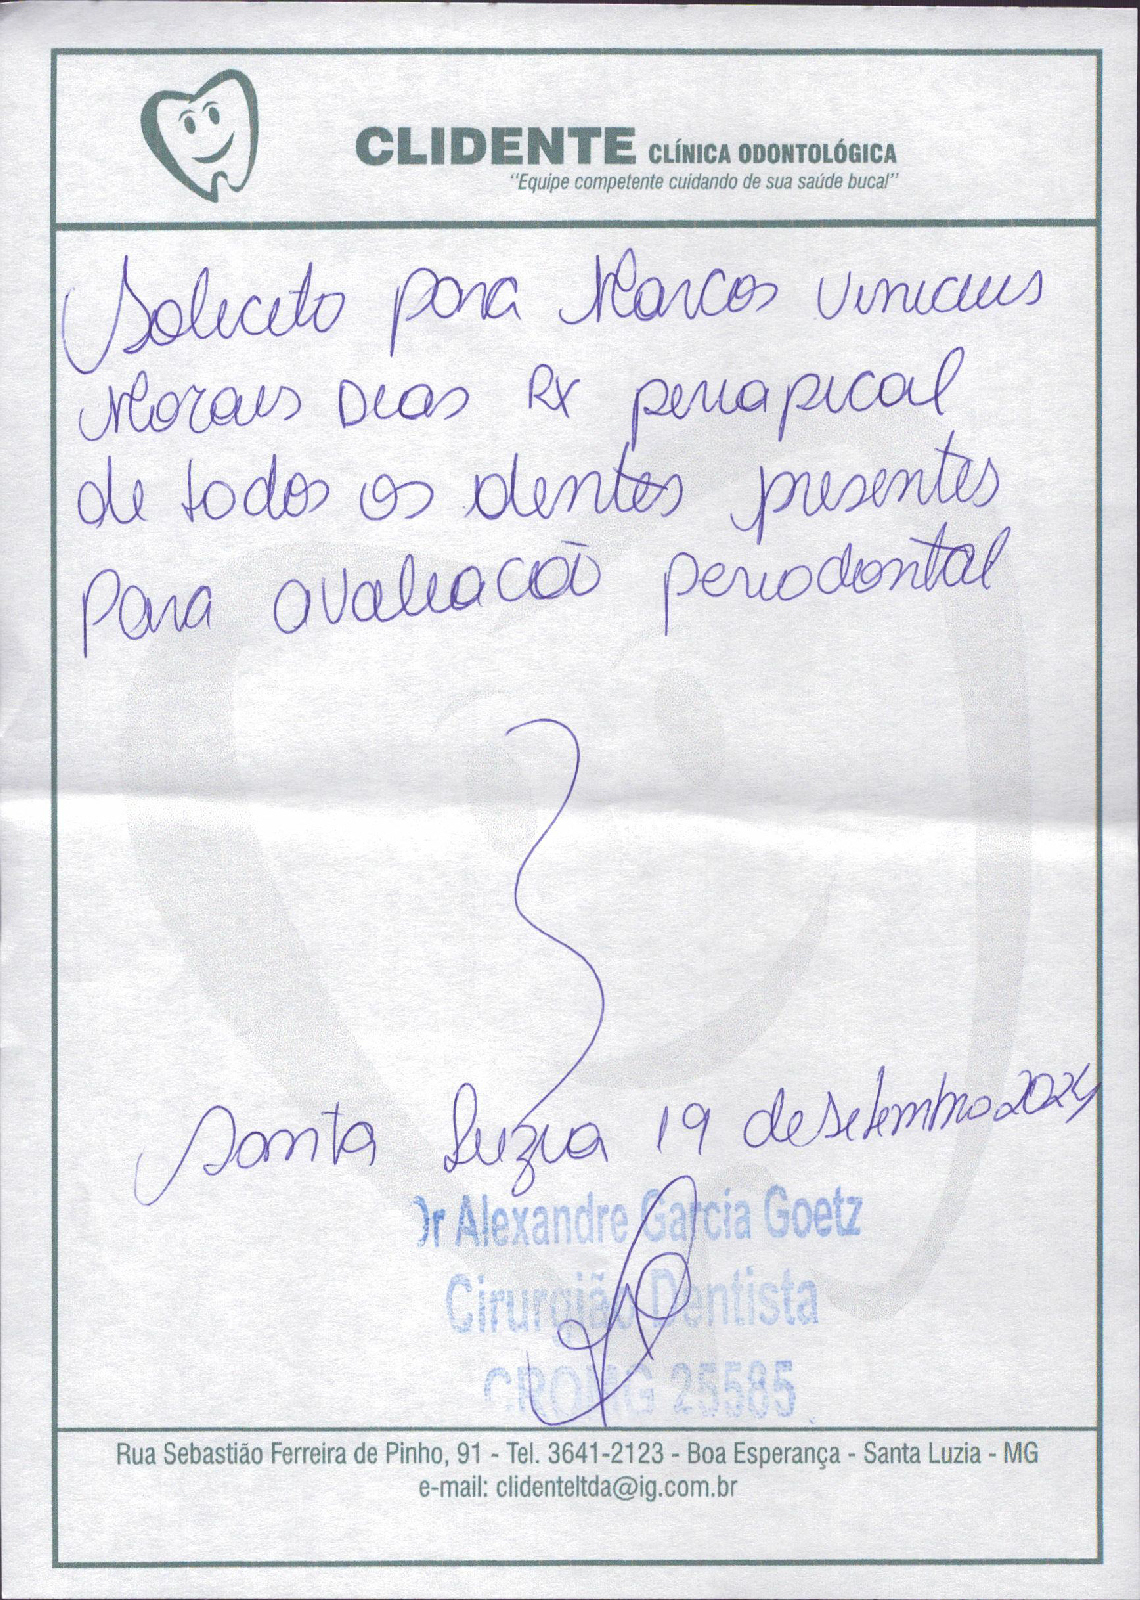 CLIDENTE CLÍNICA ODONTOLÓGICA
"Equipe competente cuidando de sua saúde bucal"
Solicito para Marcos Vinicius
Morais Dias RX periapical
de todos os dentes presentes
para avaliacão periodontal
Santa Luzia 19 de setembro 2024
Dr Alexandre Garcia Goetz
Cirurgião Dentista
CROMG 25585
Rua Sebastião Ferreira de Pinho, 91 - Tel. 3641-2123 - Boa Esperança - Santa Luzia - MG
e-mail: clidenteltda@ig.com.br